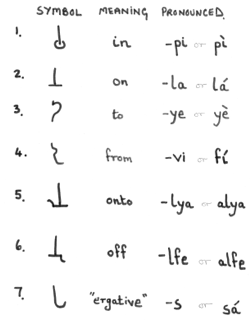 SYMBOL MEANING PRONOUNCED.
1. in -pi or pì
2. on -la or lá
3. to -ye or yè
4. from -vi or fí
5. onto -lya or alya
6. off -lfe or alfe
7. "ergative" -s or sá